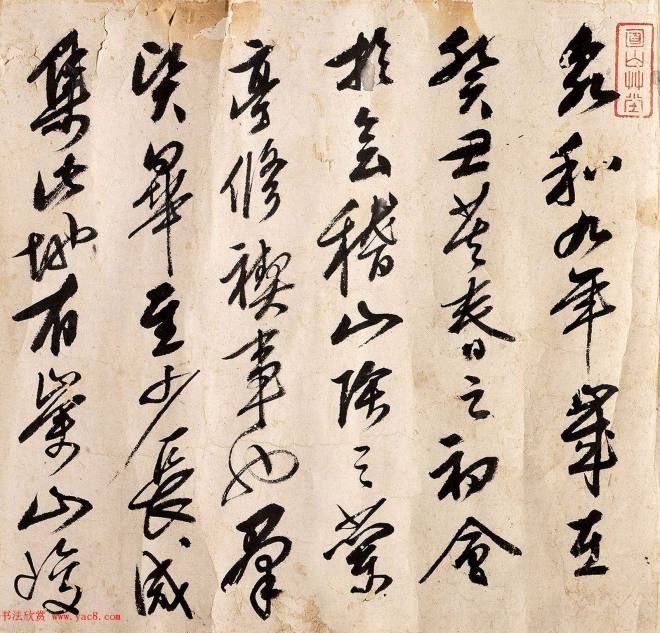 永和九年歲在
癸丑莫春之初會
於会稽山陰之蘭
亭脩禊事也羣
賢畢至少長咸
集此地有崇山峻
山艸堂
书法欣赏 www.yac8.com